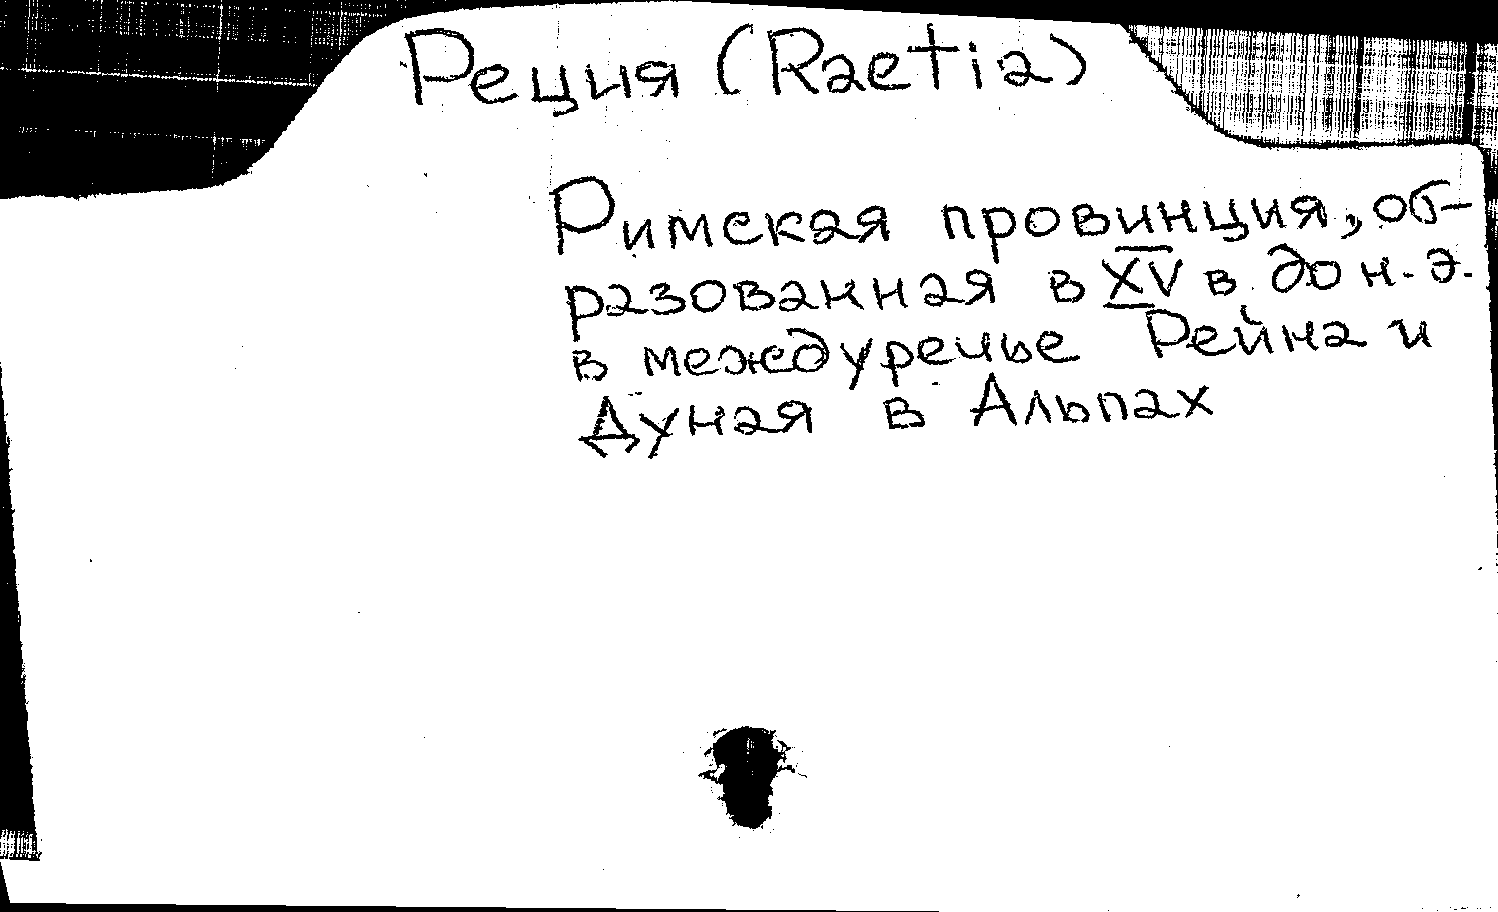 Реция (Raetia)
Римская провинция, об-
разованная в XV в. до н. э.
в междуречье Рейна и
Дуная в Альпах